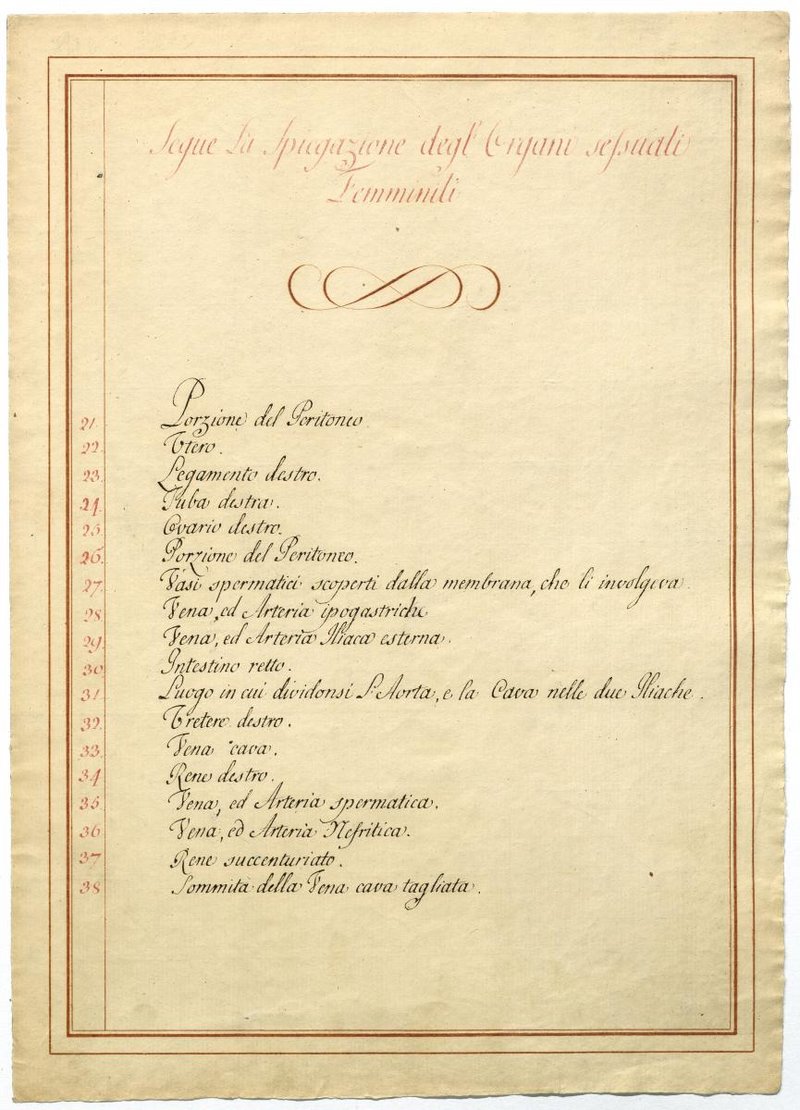 Segue La Spiegazione degl' Organi sessuali
Femminili
21. Porzione del Peritoneo
22. Utero.
23. Legamento destro.
24. Tuba destra.
25. Ovario destro.
26. Porzione del Peritoneo.
27. Vasi spermatici scoperti dalla membrana, che li involgeva.
28. Vena, ed Arteria ipogastriche
29. Vena, ed Arteria Iliaca esterna.
30 Intestino retto.
31. Luogo in cui dividonsi L'Aorta, e la Cava nelle due Iliache.
32. Uretere destro.
33. Vena cava.
34 Rene destro.
35 Vena, ed Arteria spermatica.
36 Vena, ed Arteria Nefritica.
37 Rene succenturiato.
38 Sommità della Vena cava tagliata.